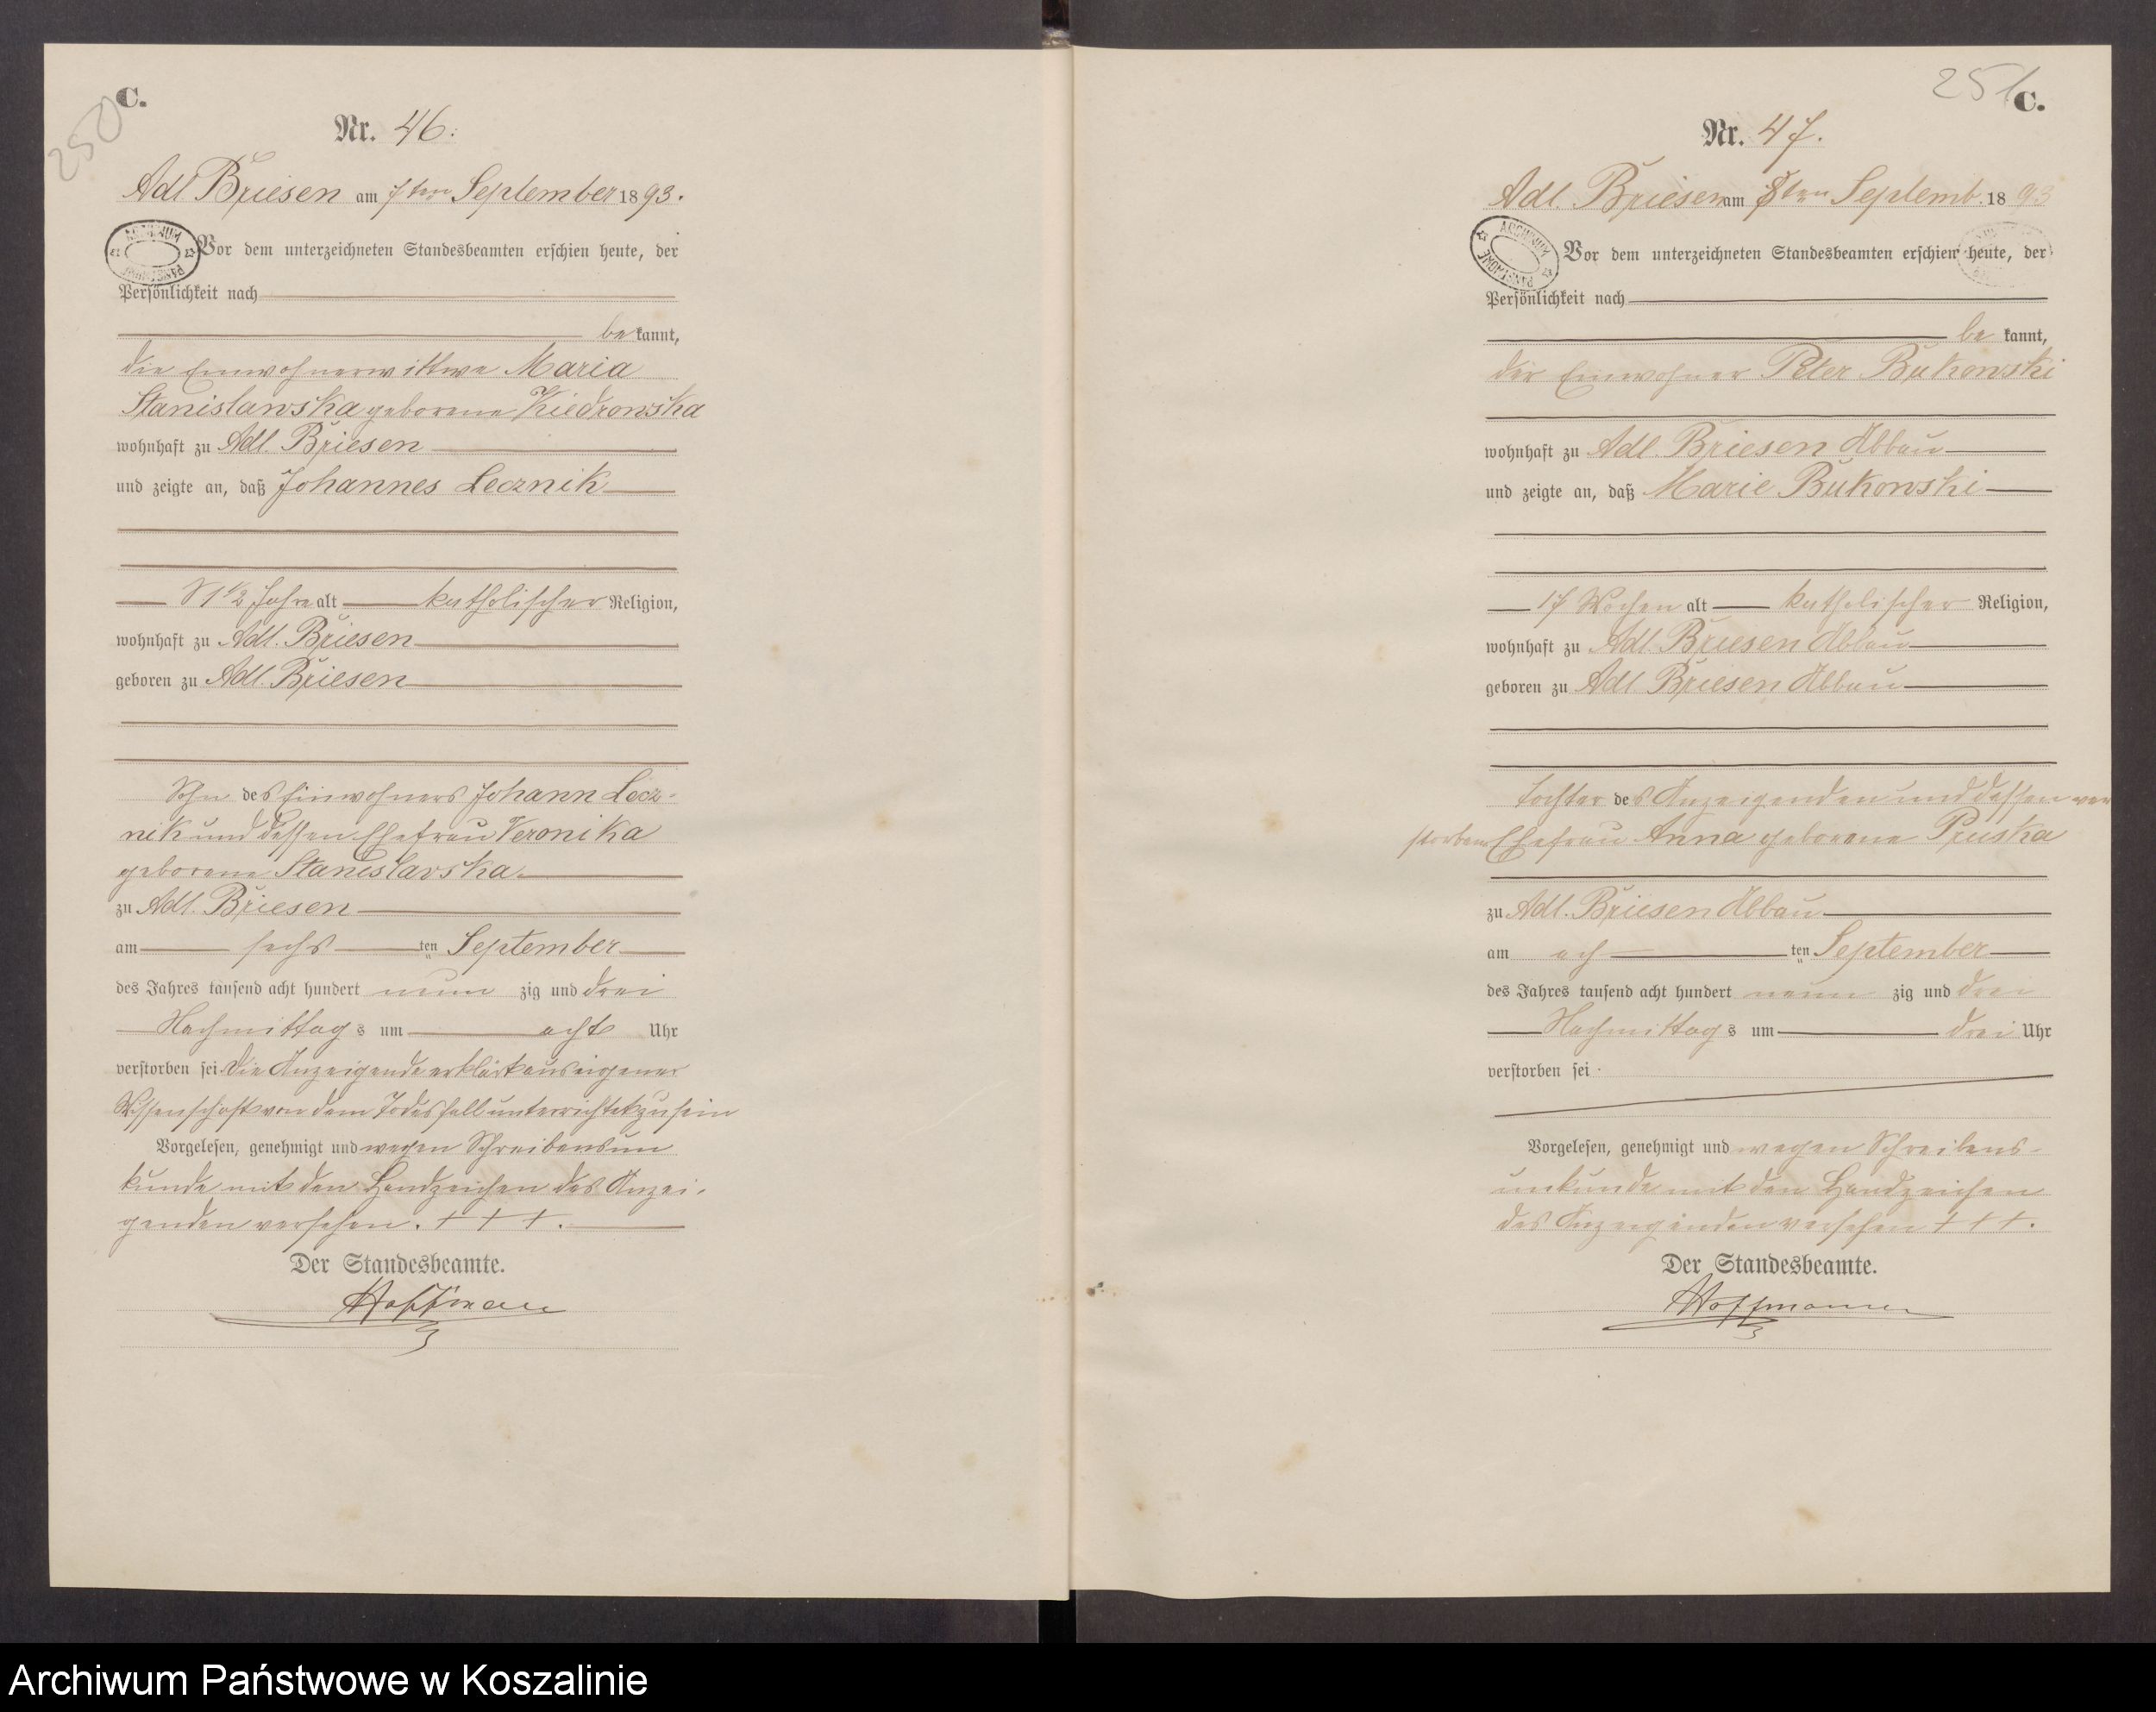 250
C.
Nr. 46.
Adl Briesen am 7ten September 1893.
Vor dem unterzeichneten Standesbeamten erschien heute, der
Persönlichkeit nach
be kannt,
die Einwohnerwittwe Maria
Stanislawska geborene Kiedrowska
wohnhaft zu Adl. Briesen
und zeigte an, daß Johannes Lecznik
1½ Jahre alt katholischer Religion,
wohnhaft zu Adl. Briesen
geboren zu Adl. Briesen
Sohn des Einwohners Johann Lecz-
nik und dessen Ehefrau Veronika
geborene Stanislavska
zu Adl. Briesen
am sechs ten September
des Jahres tausend acht hundert neun zig und drei
Nachmittags um acht Uhr
verstorben sei. Die Anzeigende erklärt aus eigener
Wissenschaft von dem Todesfall unterrichtet zu sein
Vorgelesen, genehmigt und wegen Schreibensun
kunde mit den Handzeichen des Anzei-
genden versehen. + + +.
Der Standesbeamte.
Hoffmann
251
C.
Nr. 47.
Adl. Briesen am 8ten Septemb. 1893
Vor dem unterzeichneten Standesbeamten erschien heute, der
Persönlichkeit nach
be kannt,
der Einwohner Peter Bukowski
wohnhaft zu Adl. Briesen Abbau
und zeigte an, daß Marie Bukowski
17 Wochen alt katholischer Religion,
wohnhaft zu Adl. Briesen Abbau
geboren zu Adl. Briesen Abbau
Tochter des Anzeigenden und dessen ver
storbene Ehefrau Anna geborene Pruska
zu Adl. Briesen Abbau
am ach ten September
des Jahres tausend acht hundert neun zig und drei
Nachmittags um drei Uhr
verstorben sei.
Vorgelesen, genehmigt und wegen Schreibens-
unkunde mit den Handzeichen
des Anzeigenden versehen + + +.
Der Standesbeamte.
Hoffmann
Archiwum Państwowe w Koszalinie